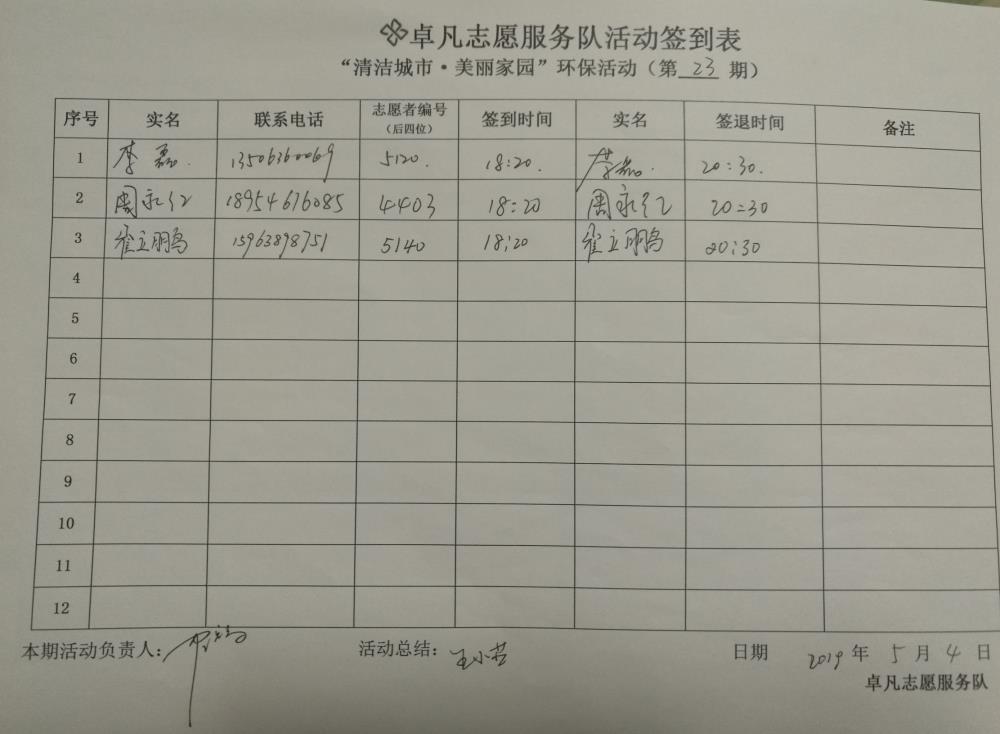 卓凡志愿服务队活动签到表
“清洁城市·美丽家园”环保活动（第 23 期）
序号 实名 联系电话 志愿者编号（后四位） 签到时间 实名 签退时间 备注
1 李磊. 13506360069 5120. 18:20. 李磊. 20:30.
2 周永红 18954676085 4403 18:20 周永红 20:30
3 崔立鹏 15963898751 5140 18:20 崔立鹏 20:30
4
5
6
7
8
9
10
11
12
本期活动负责人： 活动总结： 王小芸 日期 2019 年 5 月 4 日
卓凡志愿服务队